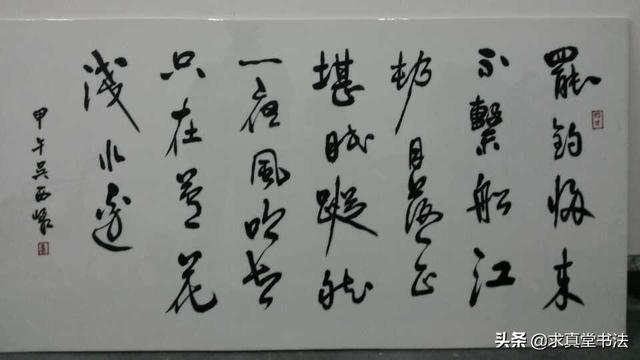 罷釣歸来
不繫船江
村月落正
堪眠蹤然
一夜風吹去
只在蘆花
淺水邊
甲午吴西
头条@求真堂书法